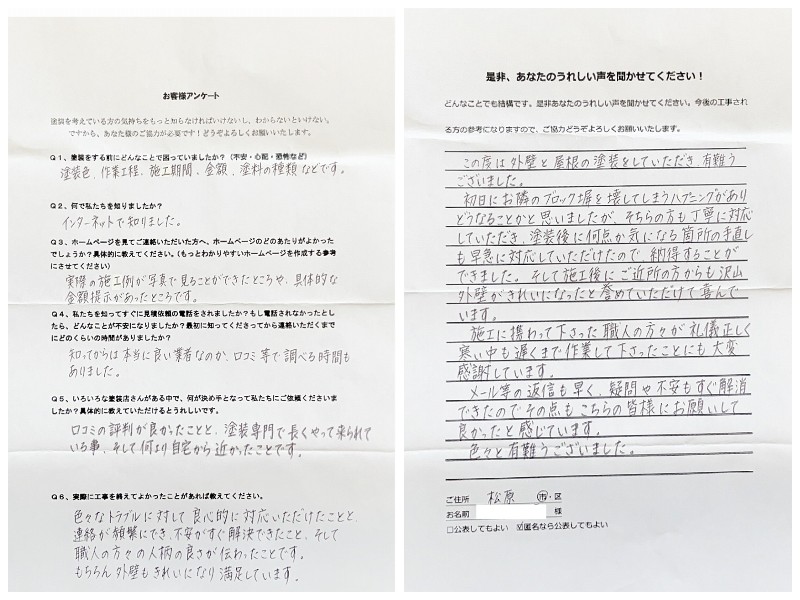 お客様アンケート
塗装を考えている方の気持ちをもっと知らなければいけないし、わからないといけない。
ですから、あなた様のご協力が必要です！どうぞよろしくお願いいたします。
Q１、塗装をする前にどんなことで困っていましたか？（不安・心配・恐怖など）
塗装色、作業工程、施工期間、金額、塗料の種類などです。
Q２、何で私たちを知りましたか？
インターネットで知りました。
Q３、ホームページを見てご連絡いただいた方へ、ホームページのどのあたりがよかった
でしょうか？具体的に教えてください。（もっとわかりやすいホームページを作成する参考
にさせてください）
実際の施工例が写真で見ることができたところや、具体的な
金額提示があったところです。
Q４、私たちを知ってすぐに見積依頼の電話をされましたか？もし電話されなかったとし
たら、どんなことが不安になりましたか？最初に知ってくださってから連絡いただくまで
にどのくらいの時間がありましたか？
知ってからは本当に良い業者なのか、口コミ等で調べる時間も
ありました。
Q５、いろいろな塗装店さんがある中で、何が決め手となって私たちにご依頼くださいま
したか？具体的に教えていただけるとうれしいです。
口コミの評判が良かったことと、塗装専門で長くやって来られて
いる事、そして何より自宅から近かったことです。
Q６、実際に工事を終えてよかったことがあれば教えてください。
色々なトラブルに対して良心的に対応いただけたことと、
連絡が頻繁にでき、不安がすぐ解決できたこと、そして
職人の方々の人柄の良さが伝わったことです。
もちろん外壁もきれいになり満足しています。
是非、あなたのうれしい声を聞かせてください！
どんなことでも結構です。是非あなたのうれしい声を聞かせてください。今後の工事され
る方の参考になりますので、ご協力どうぞよろしくお願いいたします。
この度は外壁と屋根の塗装をしていただき有難う
ございました。
初日にお隣のブロック塀を壊してしまうハプニングがあり
どうなることかと思いましたが、そちらの方も丁寧に対応
していただき、塗装後に何点か気になる箇所の手直し
も早急に対応していただけたので、納得することが
できました。そして施工後にご近所の方からも沢山
外壁がきれいになったと誉めていただけて喜んで
います。
施工に携わって下さった職人の方々が礼儀正しく
寒い中も遅くまで作業して下さったことにも大変
感謝しています。
メール等の返信も早く、疑問や不安もすぐ解消
できたのでその点もこちらの皆様にお願いして
良かったと感じています。
色々と有難うございました。
ご住所 松原 市・区
お名前 様
□公表してもよい ☑匿名なら公表してもよい